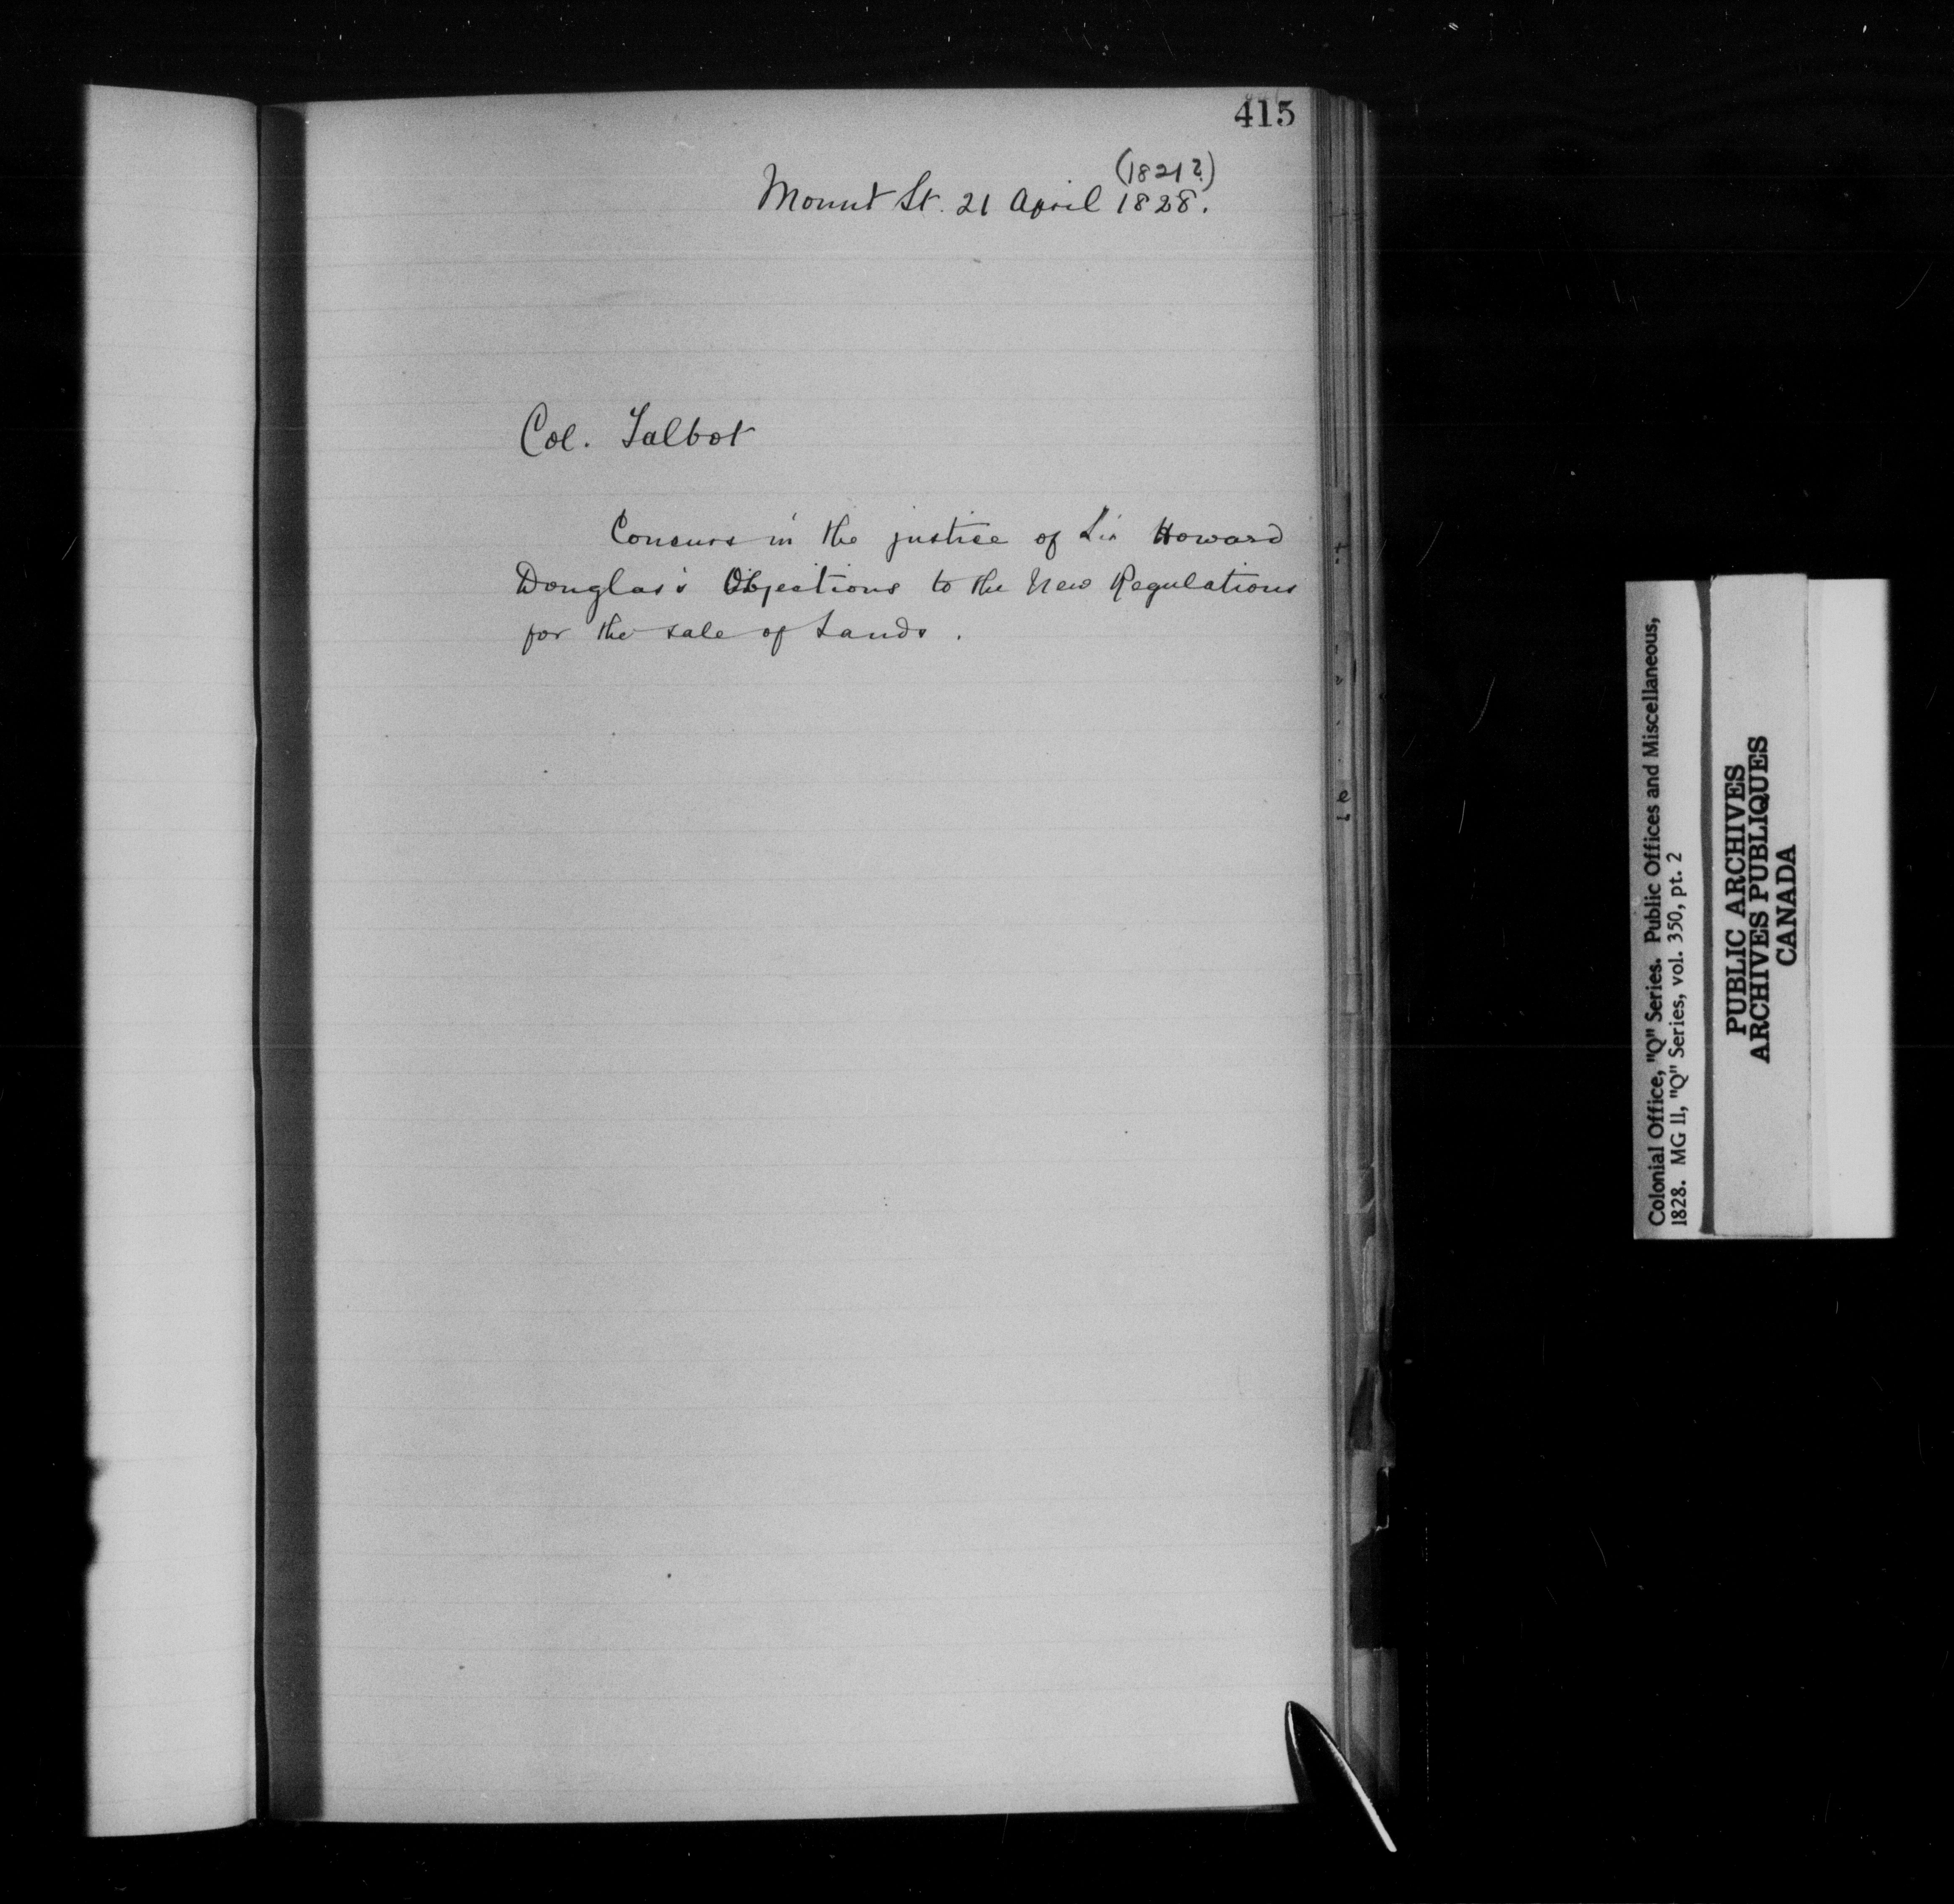 415
(1821?)
Mount St. 21 April 1828.
Col. Talbot
Concurs in the justice of Sir Howard
Douglas's Objections to the New Regulations
for the sale of Lands.
Colonial Office, "Q" Series. Public Offices and Miscellaneous,
1828. MG 11, "Q" Series, vol. 350, pt. 2
PUBLIC ARCHIVES
ARCHIVES PUBLIQUES
CANADA